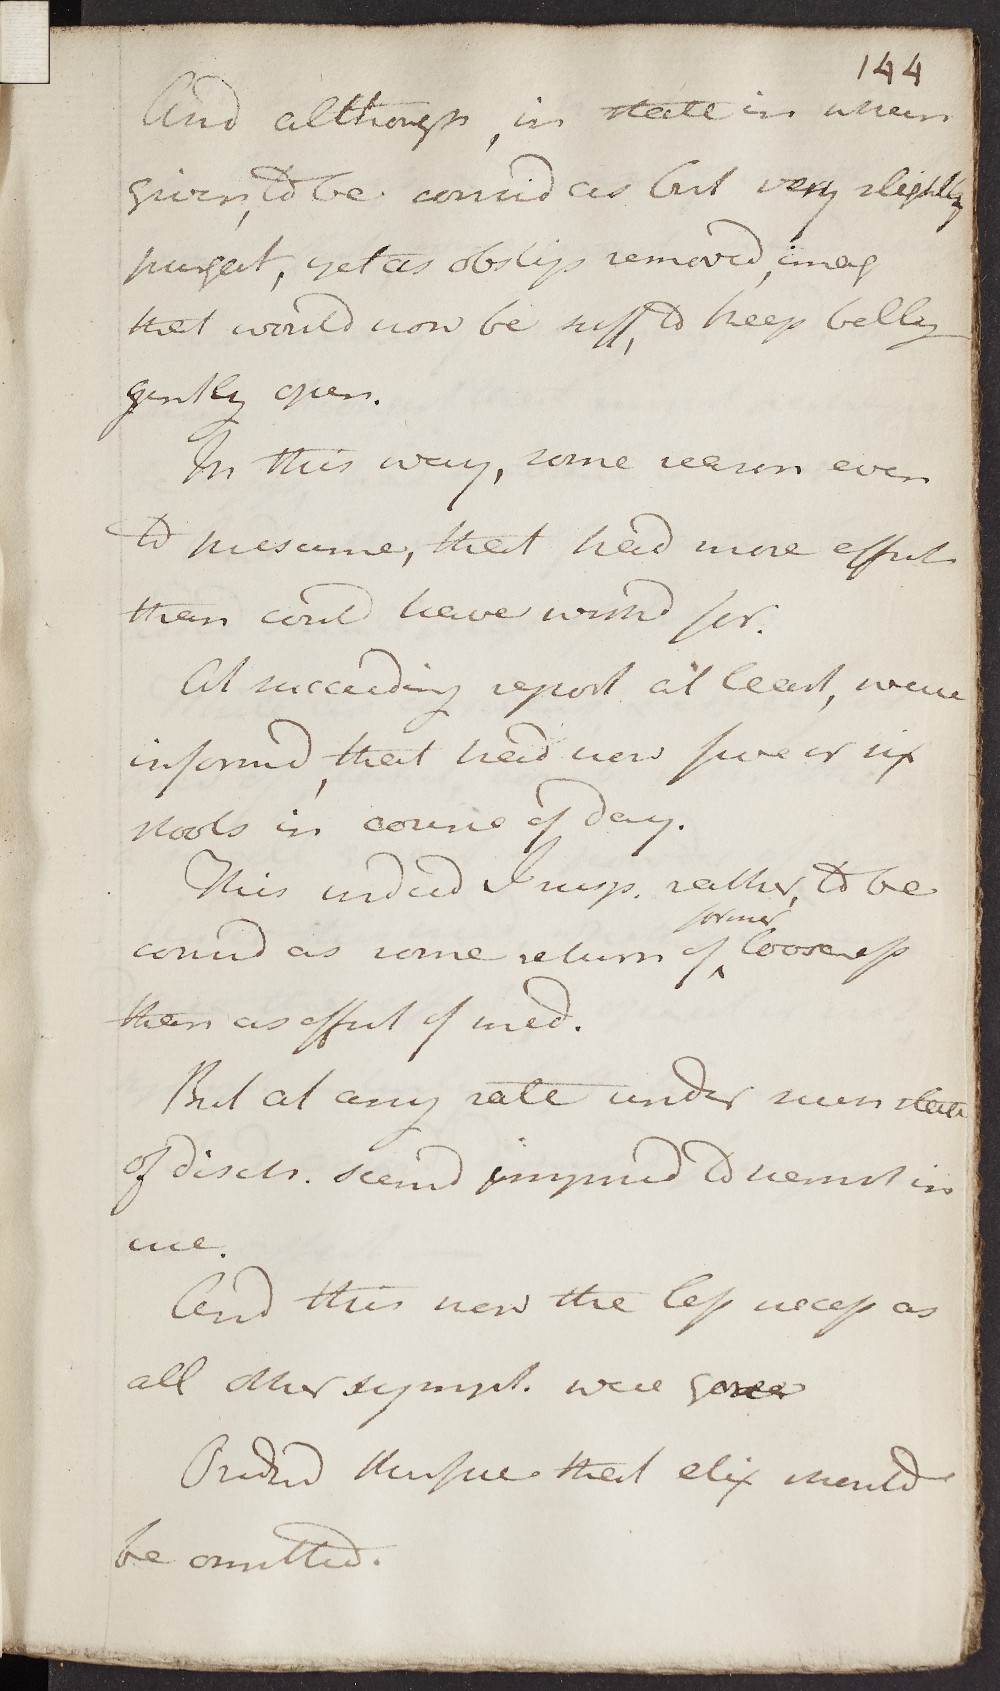 144
And although, in state in which
given, to be consid as but very slightly
purgat, yet as obstip removed, imag
that would now be suff, to keep belly
gently open.
In this way, some reason even
to presume, that had more effect
than could have wishd for.
At succeeding report at least, were
informd, that had now five or six
stools in course of day.
This indeed I susp. rather, to be
consid as some return of former looseness
than as effect of med.
But at any rate under such state
of disch. seemd improper to persist in
use.
And this now the less necess as
all other sympt. were gone
Orderd therefore that elix should
be omitted.